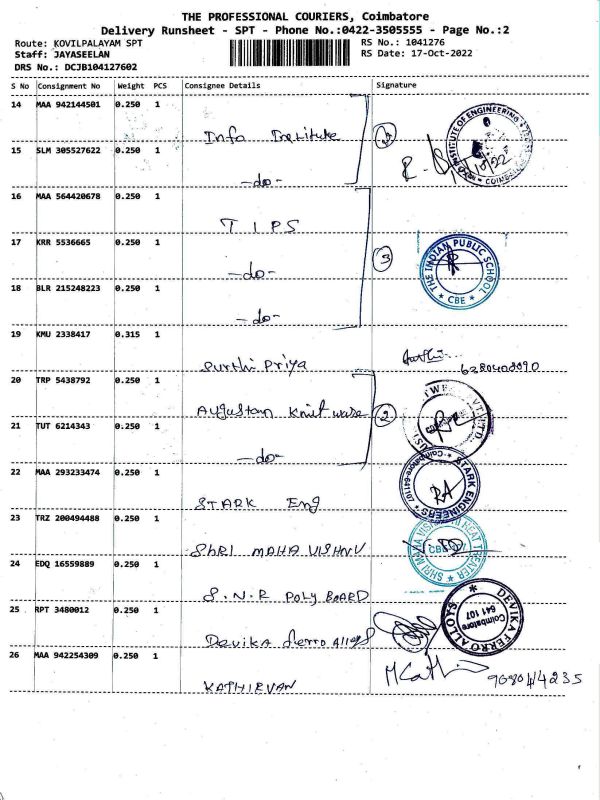 THE PROFESSIONAL COURIERS, Coimbatore
Delivery Runsheet - SPT - Phone No.:0422-3505555 - Page No.:2
Route: KOVILPALAYAM SPT
RS No.: 1041276
Staff: JAYASEELAN
RS Date: 17-Oct-2022
DRS No.: DCJB104127602
S No Consignment No Weight PCS Consignee Details Signature
14 MAA 942144501 0.250 1
Info Institute
15 SLM 305527622 0.250 1
-do-
16 MAA 564420678 0.250 1
T I P S
17 KRR 5536665 0.250 1
-do- 3
THE INDIAN PUBLIC SCHOOL
* CBE *
18 BLR 215248223 0.250 1
-do-
19 KMU 2338417 0.315 1
Priya
20 TRP 5438792 0.250 1
Augustan Knit wase 2
21 TUT 6214343 0.250 1
-do-
22 MAA 293233474 0.250 1
STARK Eng
STARK ENGINEERS
RA
23 TRZ 200494488 0.250 1
SHRI MAHA VISHNU
24 EDQ 16559889 0.250 1
S.N.R POLY BOARD
25 RPT 3480012 0.250 1
Devika ferro Alloys
DEVIKA FERRO ALLOYS
Coimbatore
641 107
26 MAA 942254309 0.250 1
KATHIRVAN